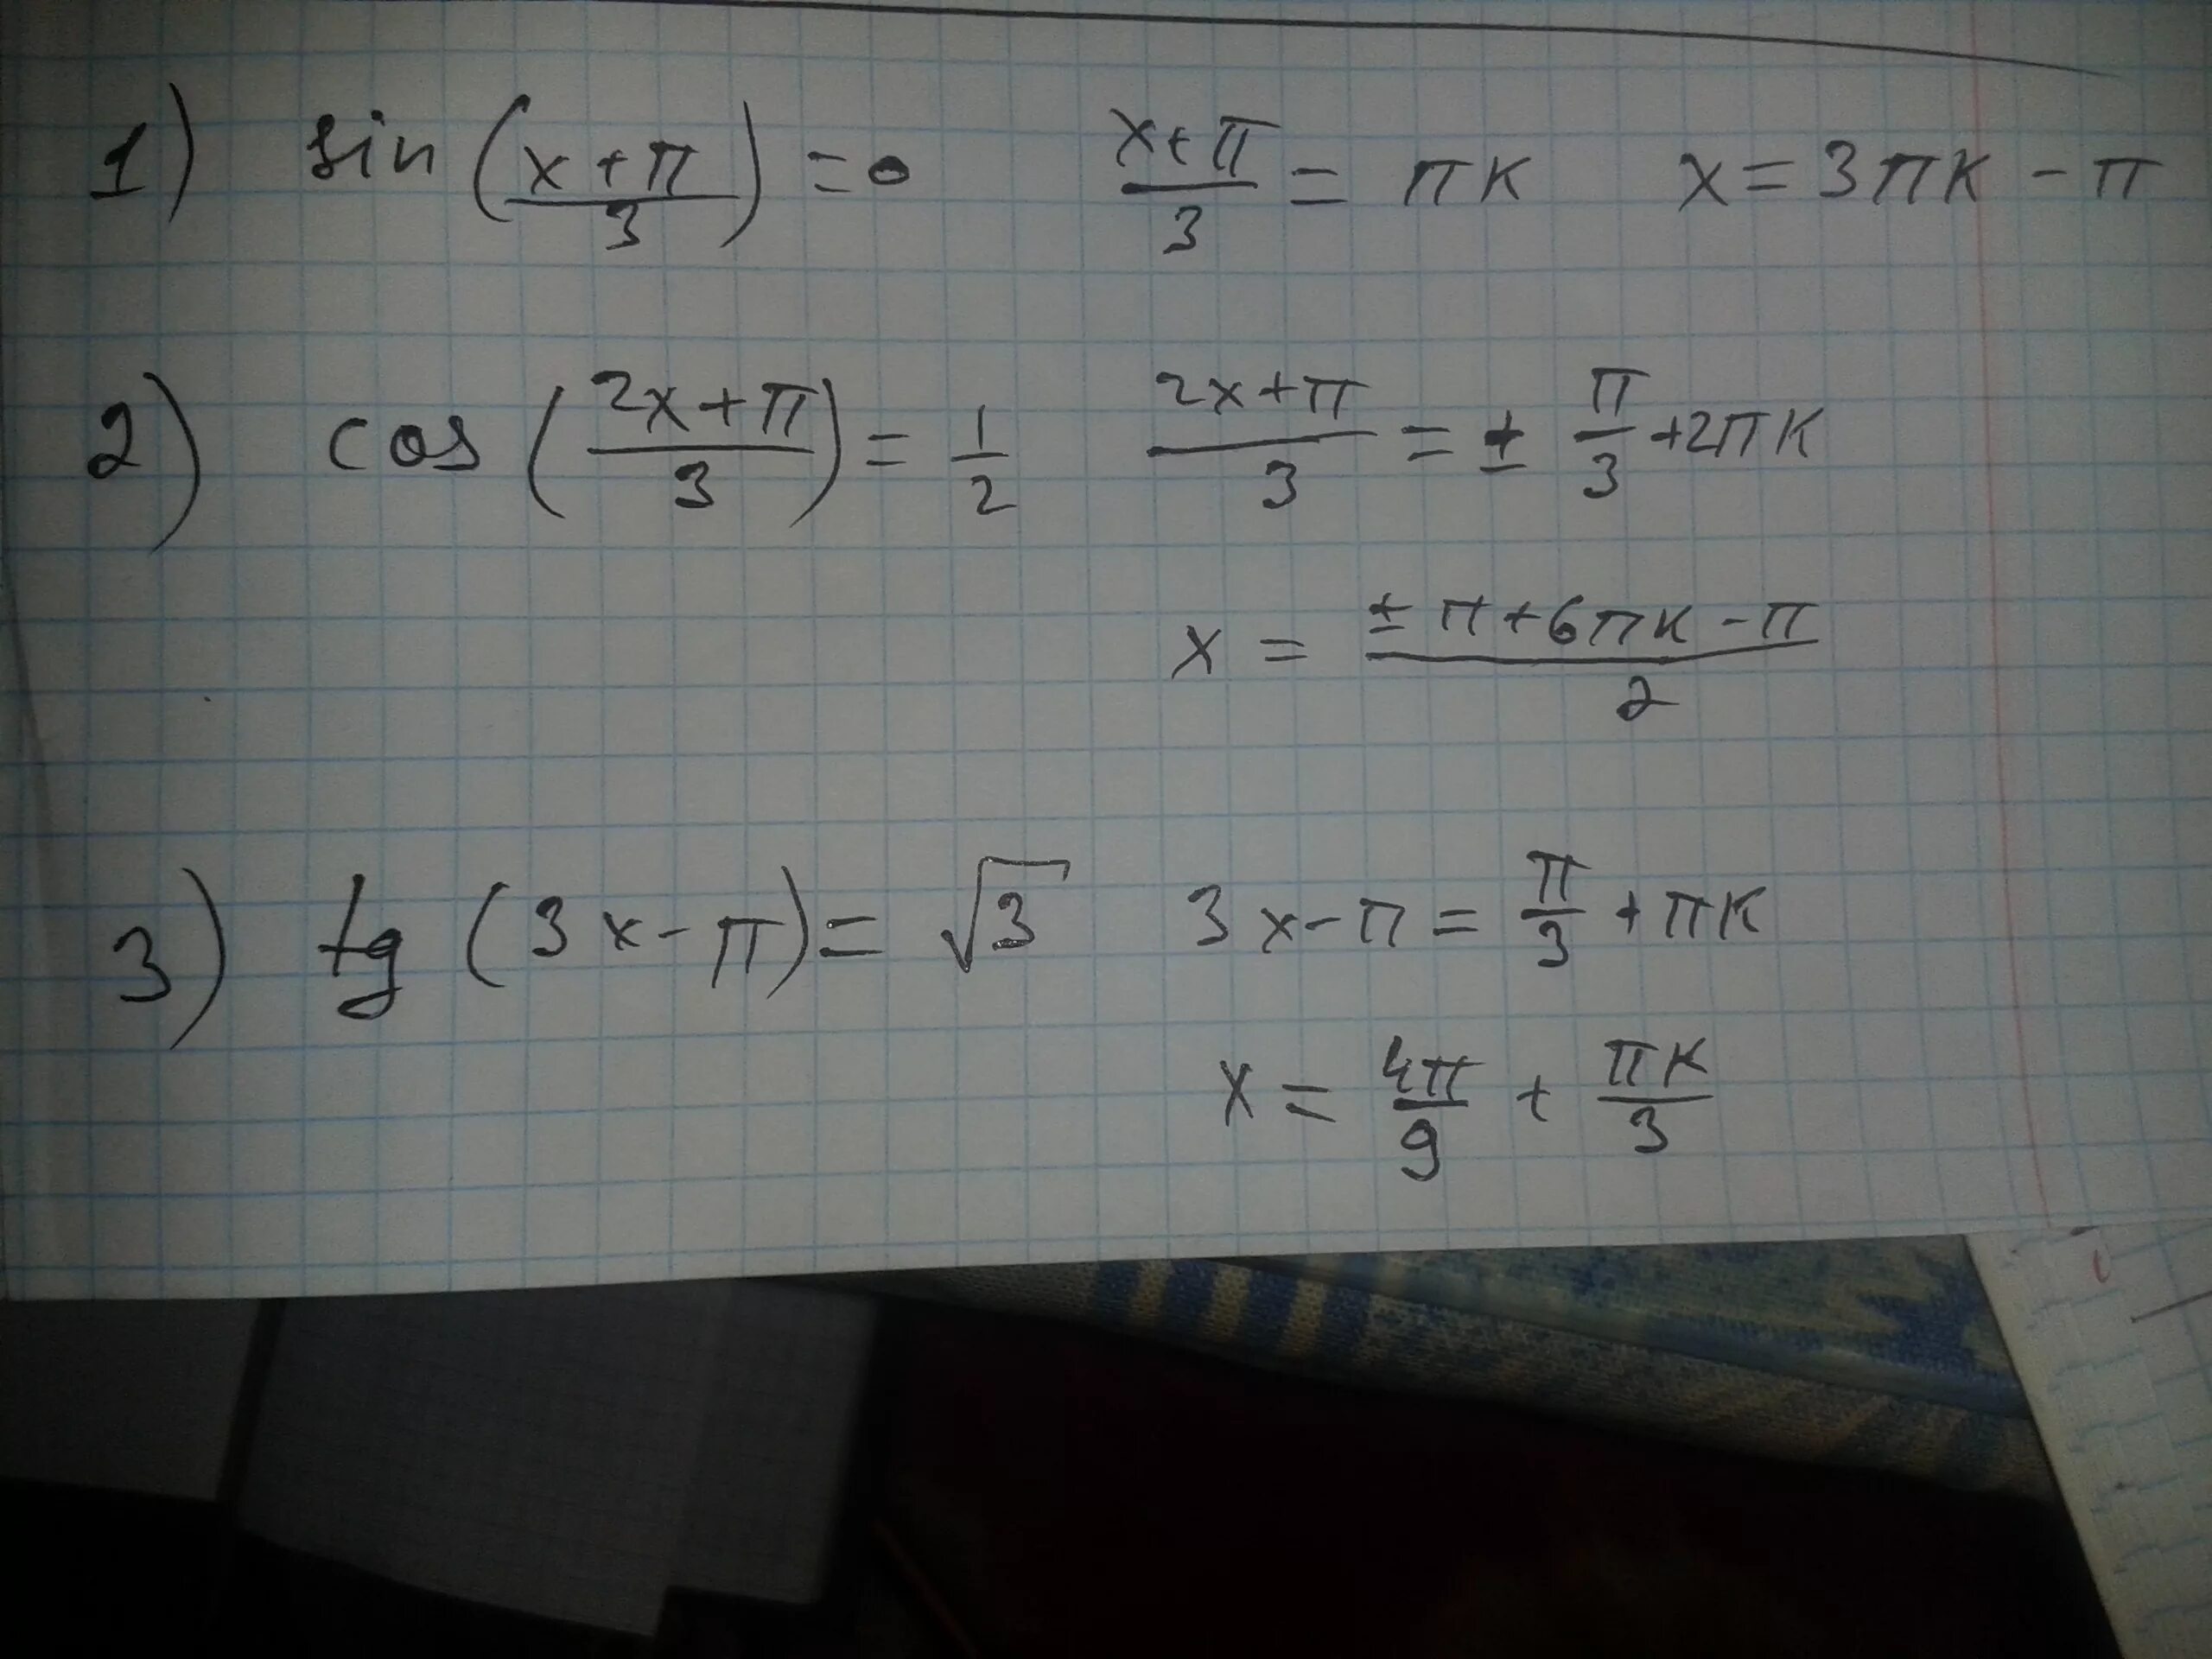 1) sin((x+π)/3)=0   (x+π)/3 = πk   x=3πk-π
2) cos((2x+π)/3)=1/2   (2x+π)/3 = ± π/3+2πk
x = (±π+6πk-π)/2
3) tg(3x-π)=√3   3x-π=π/3+πk
x = 4π/9 + πk/3